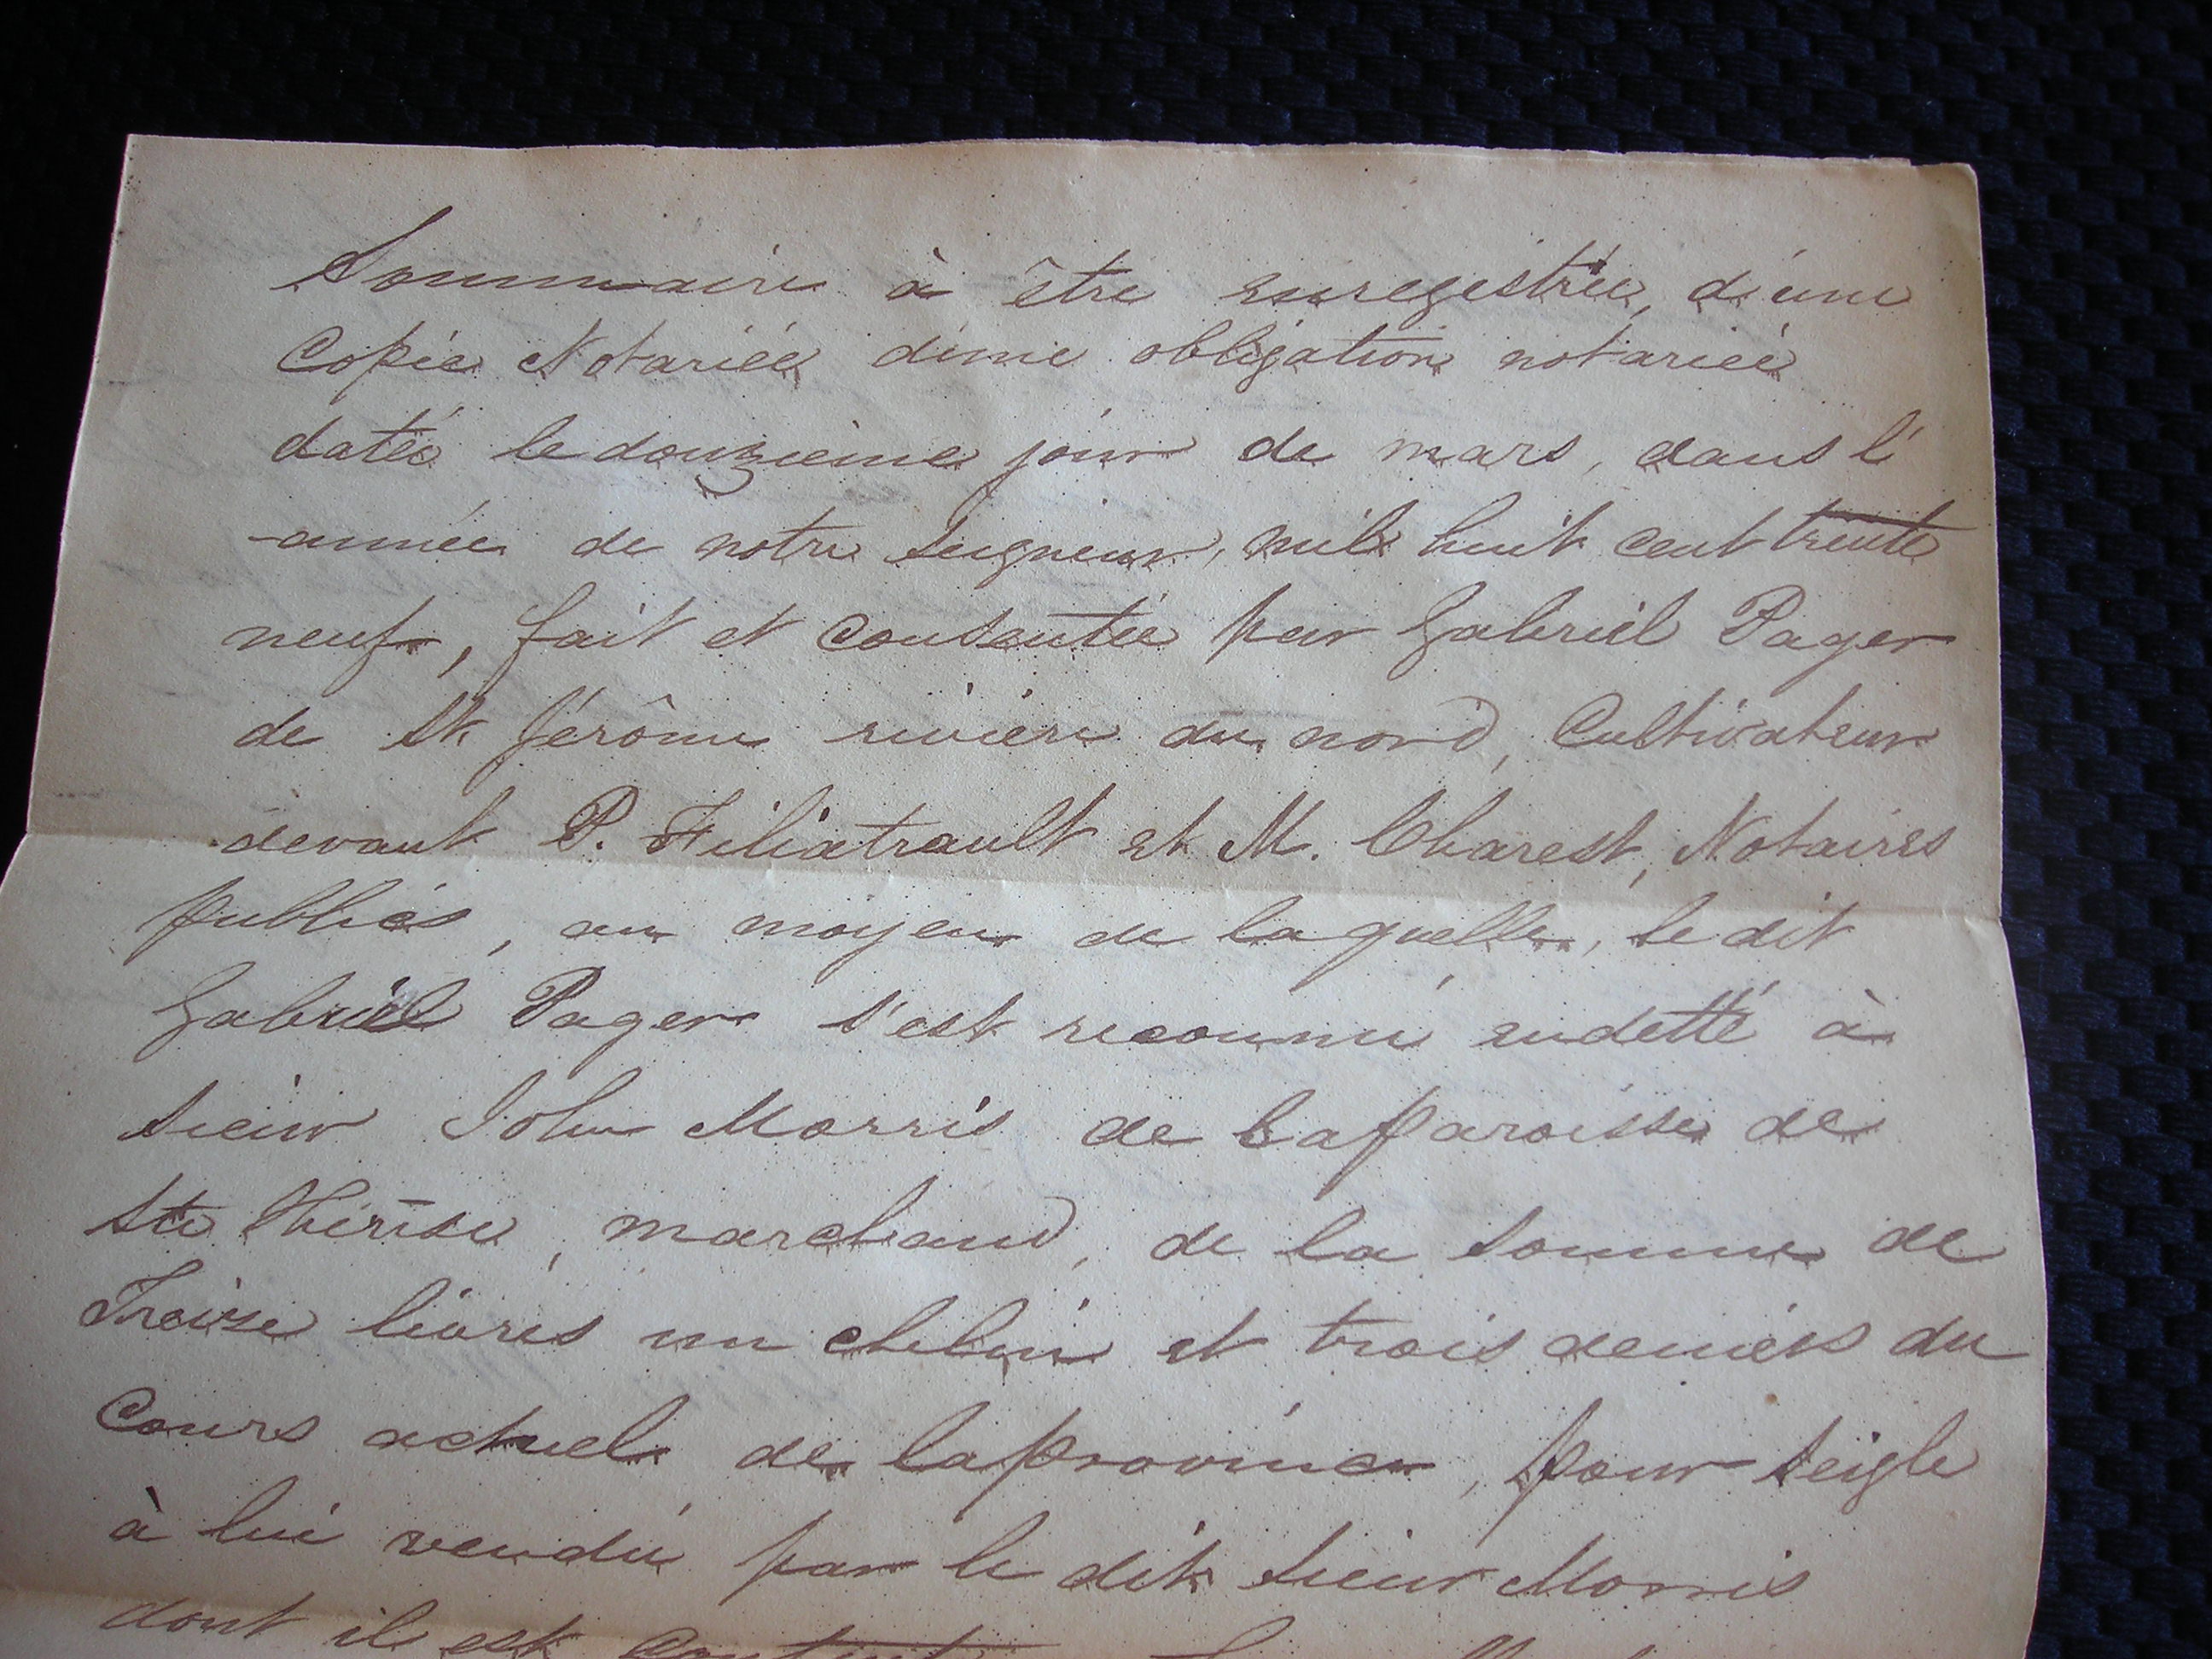 Sommaire à être enregistrée, d'une
Copie Notariée d'une obligation notariée
datée le douzieme jour de mars, dans l'
année de notre Seigneur, mil huit cent trente
neuf, fait et consentée par Gabriel Pager
de St Jérôme riviere du nord, Cultivateur
devant P. Filiatrault et M. Charest, Notaires
publics, au moyen de la quelle, le dit
Gabriel Pager s'est reconnu endetté à
Sieur John Morris de la paroisse de
Ste Thérèse, marchand, de la somme de
Treize livres un chelin et trois deniers du
Cours actuel de la province, pour seigle
à lui vendu par le dit Sieur Morris
dont il est Content